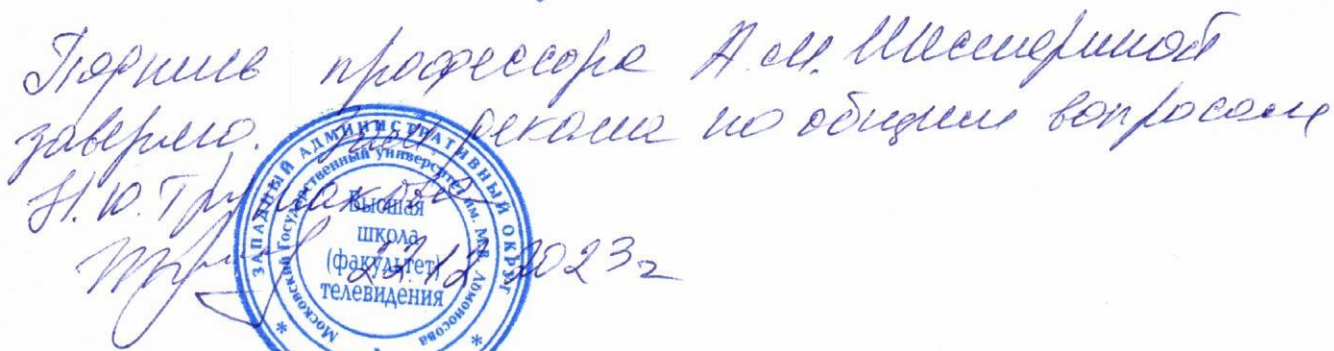 Подпись профессора А.М. Шестериной
заверяю. Зам. декана по общим вопросам
Н.Ю.
22.12.2023г
ЗАПАДНЫЙ АДМИНИСТРАТИВНЫЙ ОКРУГ
Московский Государственный Университет им. М.В. Ломоносова
Высшая
школа
(факультет)
телевидения